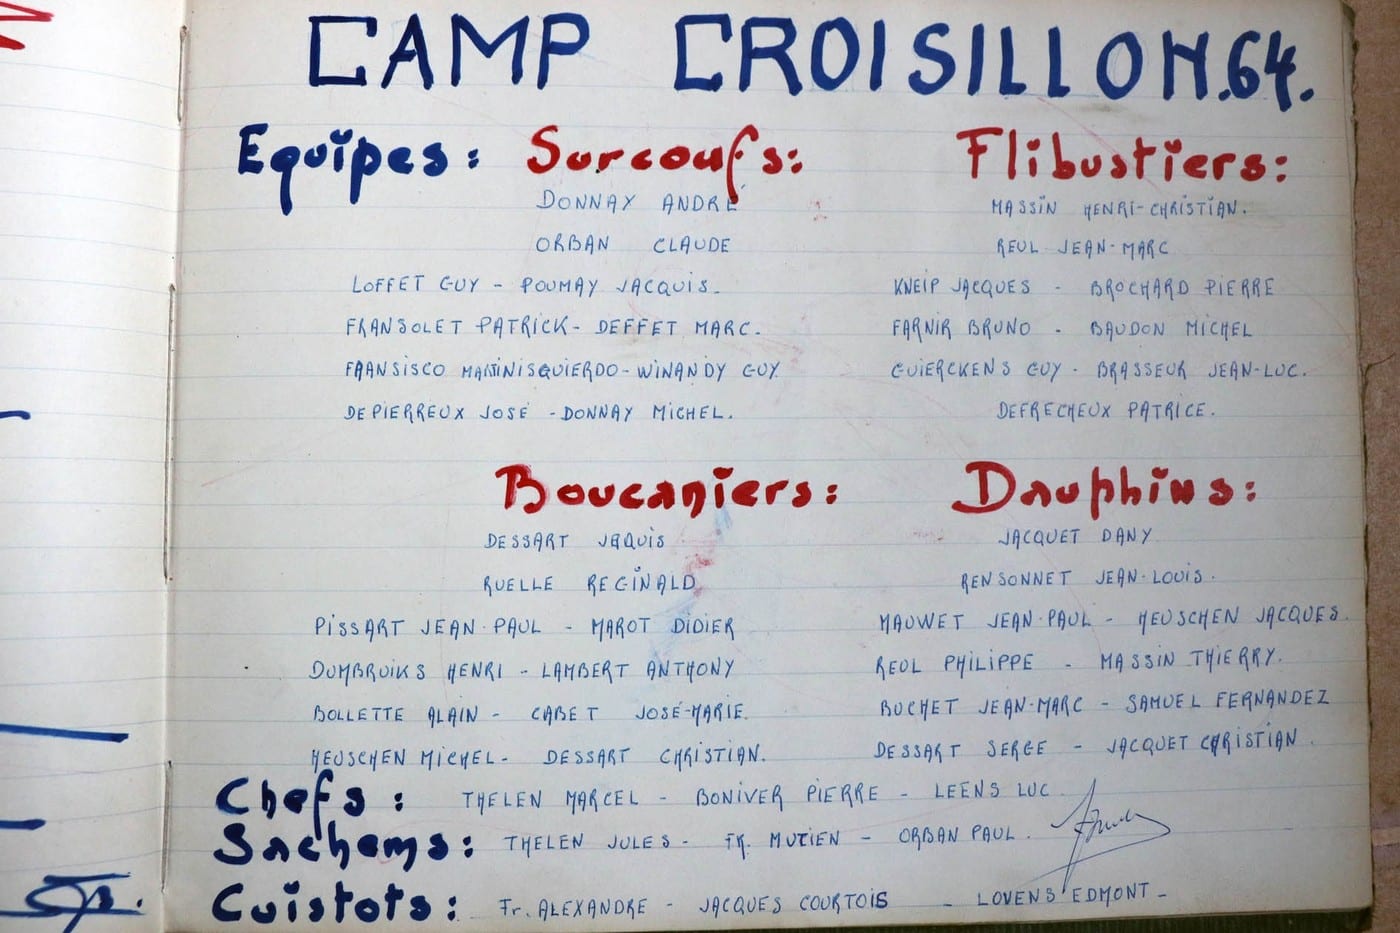 CAMP CROISILLON.64.
Equipes: Surcoufs: Flibustiers:
DONNAY ANDRÉ
ORBAN CLAUDE
LOFFET GUY - POUMAY JACQUIS.
FRANSOLET PATRICK - DEFFET MARC.
FRANSISCO MARTINISQUIERDO - WINANDY GUY
DEPIERREUX JOSÉ - DONNAY MICHEL.
MASSIN HENRI-CHRISTIAN.
REUL JEAN-MARC
KNEIP JACQUES - BROCHARD PIERRE
FARNIR BRUNO - BAUDON MICHEL
GUIERCKENS GUY - BRASSEUR JEAN-LUC.
DEFRECHEUX PATRICE.
Boucaniers:
DESSART JAQUIS
RUELLE REGINALD
PISSART JEAN-PAUL - MAROT DIDIER
DUMBRUIKS HENRI - LAMBERT ANTHONY
BOLLETTE ALAIN - CABET JOSÉ-MARIE.
HEUSCHEN MICHEL - DESSART CHRISTIAN.
Dauphins:
JACQUET DANY
RENSONNET JEAN-LOUIS.
MAUWET JEAN-PAUL - HEUSCHEN JACQUES.
REUL PHILIPPE - MASSIN THIERRY.
BUCHET JEAN-MARC - SAMUEL FERNANDEZ
DESSART SERGE - JACQUET CHRISTIAN.
Chefs: THELEN MARCEL - BONIVER PIERRE - LEENS LUC
Sachems: THELEN JULES - FR. MUTIEN - ORBAN PAUL.
Cuistots: Fr. ALEXANDRE - JACQUES COURTOIS - LOVENS EDMONT -